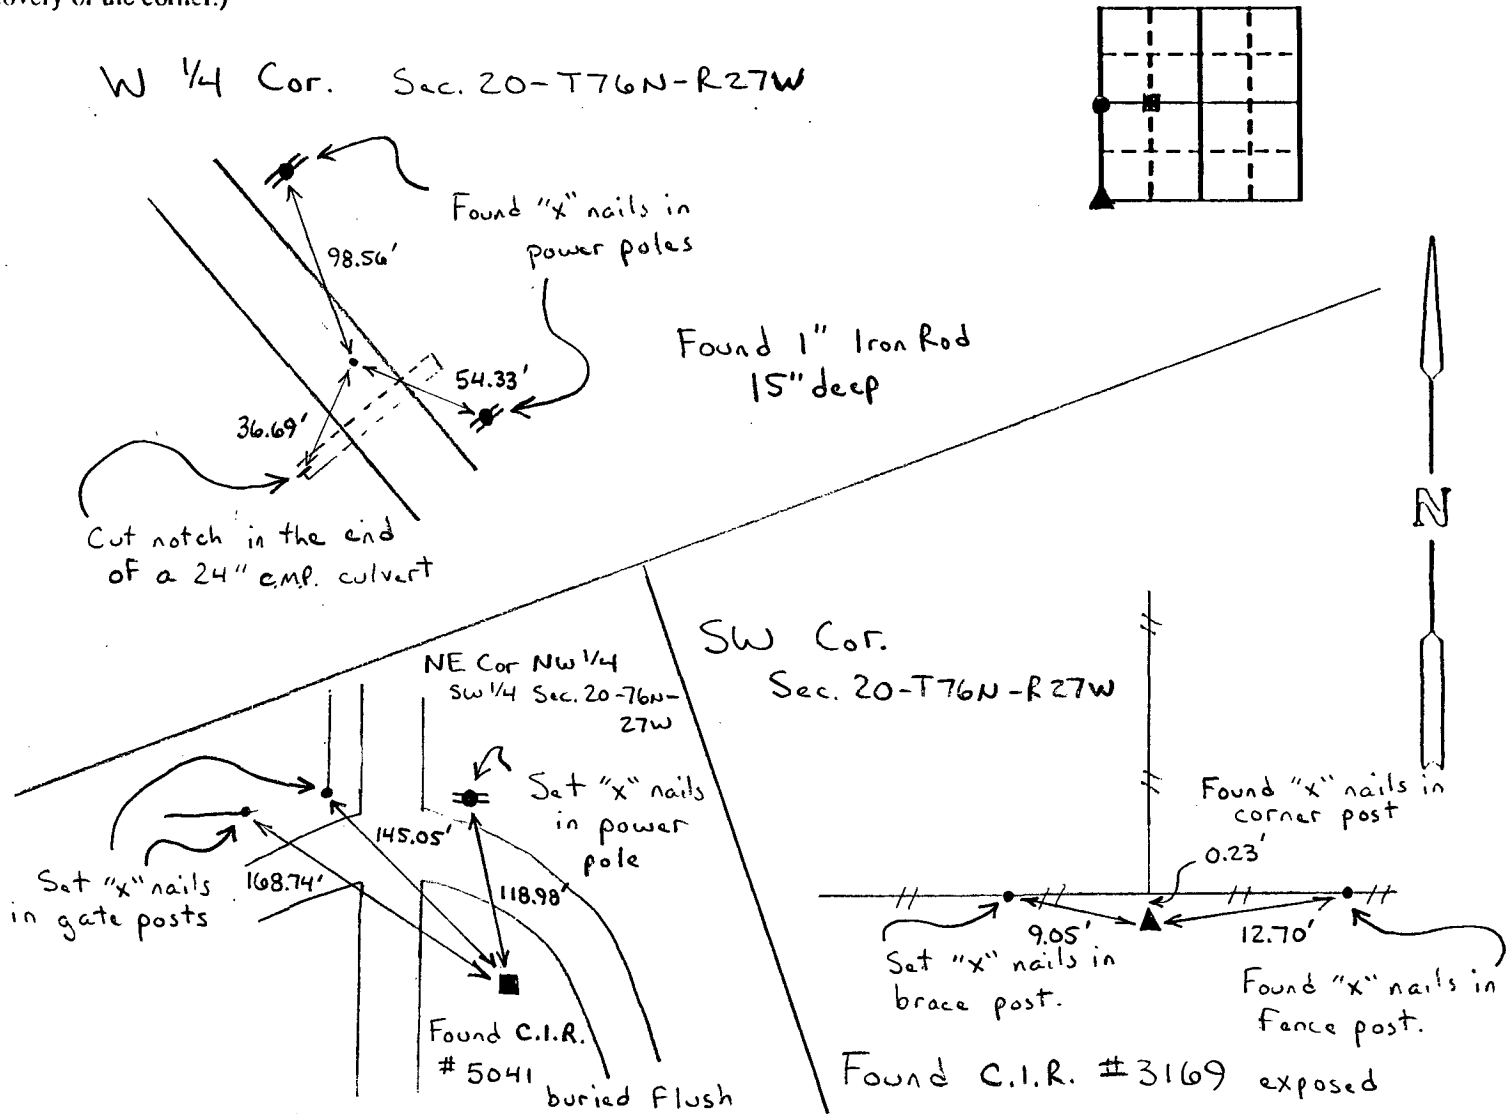 of the corner.)
W 1/4 Cor. Sec. 20-T76N-R27W
Found "x" nails in
power poles
98.56'
54.33'
36.69'
Found 1" Iron Rod
15" deep
Cut notch in the end
of a 24" C.M.P. culvert
N
NE Cor NW 1/4
SW 1/4 Sec. 20-76N-
27W
Set "x" nails
in power
pole
145.05'
168.74'
118.98'
Set "x" nails
in gate posts
Found C.I.R.
#5041
buried flush
SW Cor.
Sec. 20-T76N-R27W
Found "x" nails in
corner post
0.23'
9.05'
12.70'
Set "x" nails in
brace post.
Found "x" nails in
fence post.
Found C.I.R. #3169 exposed